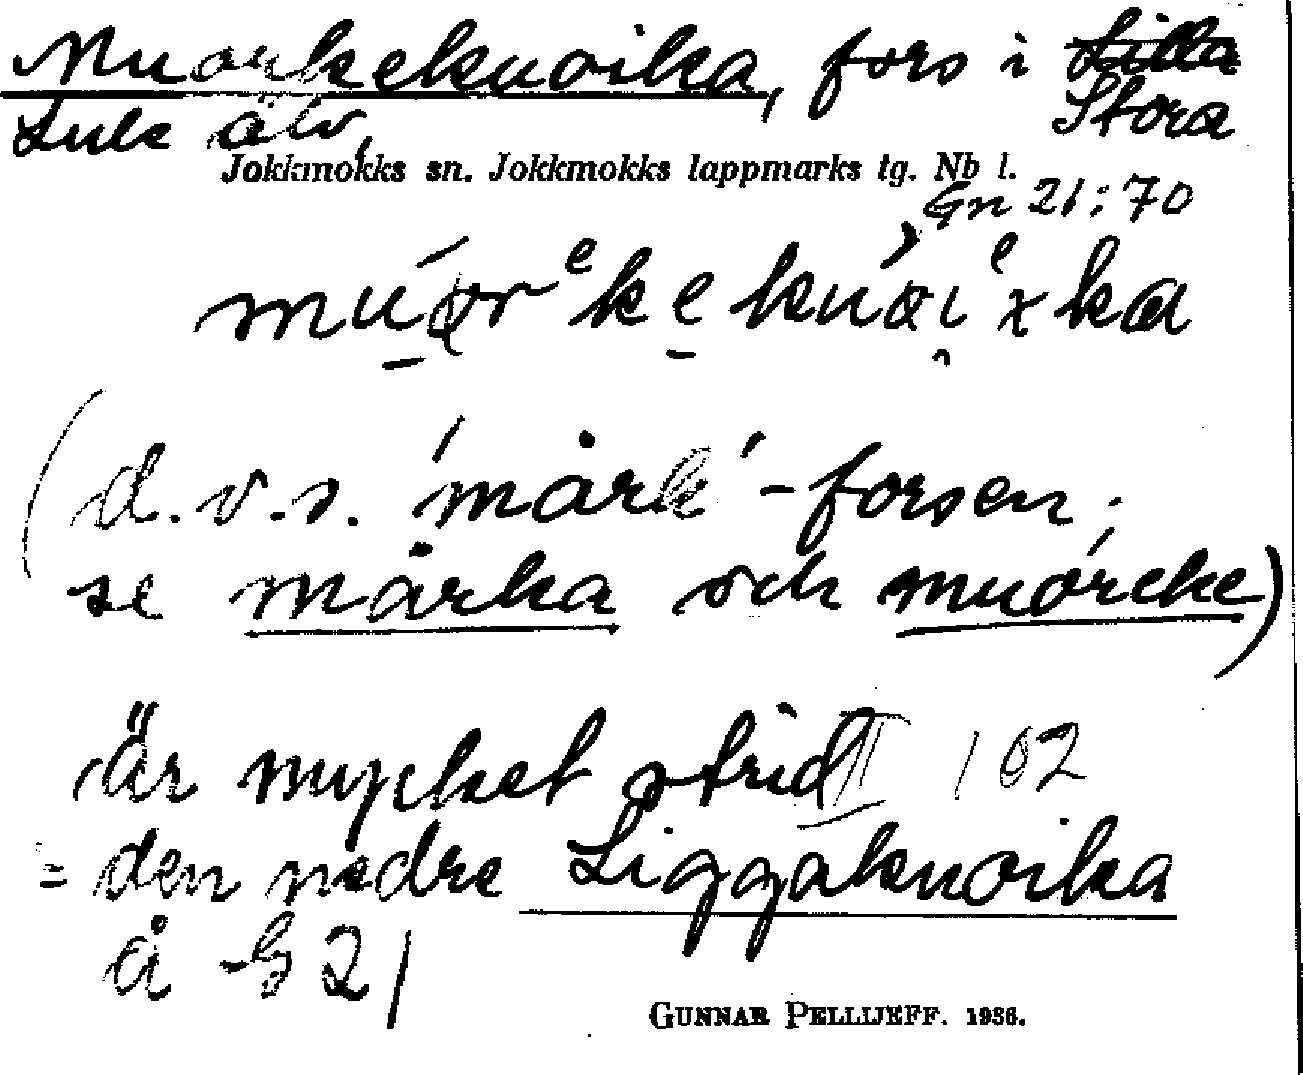 Muorkekuoika, fors i ~~Lilla~~
Lule älv, Stora
Jokkmokks sn. Jokkmokks lappmarks tg. Nb l.
Gn 21:70
(d.v.s. 'märk'-forsen;
se märka och muórcke)
är mycket strid II 102
= den nedre Liggakuoika
å G 21
GUNNAR PELLIJEFF. 1936.